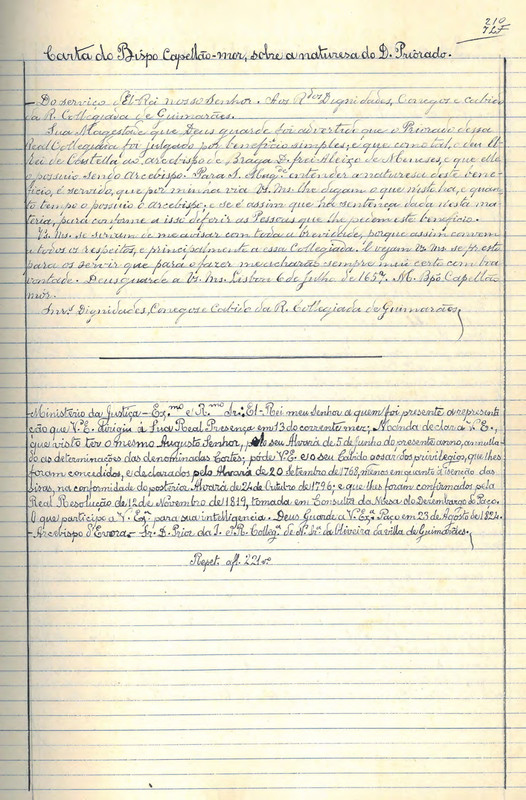 210
747
Carta do Bispo Capellão-mor, sobre a naturesa do D. Priorado.
— Do serviço d'El-Rei nosso Senhor. Aos Rdos Dignidades, Conegos e cabido
da R. Collegiava de Guimarães.
Sua Magestade que Deus guarde foi advertida que o Priorado dessa
Real Collegiada foi julgado por beneficio simples; e que como tal, o deu Al-
brei de Castella ao arcebispo de Braga D. frei Aleixo de Meneses, e que elle
o possuio sendo Arcebispo. Para S. Magde entender a naturesa deste bene-
ficio, é servido, que por minha via Vs. Ms. lhe digam o que nisto ha, e quan-
to tempo o possuio o Arcebispo, e se é assim que ha sentença dada nesta ma-
teria, para conforme a isso deferir as Pessoas que lhe pedem este beneficio.
Vs. Ms. se sirvam de me avisar com toda a brevidade, porque assim convem
a todos os respeitos, e principalmente a essa Collegiada. E vejam Vs. Ms. se presto
para os servir que para o fazer me acharão sempre mui certo com boa
vontade. Deus guarde a Vs. Ms. Lisboa 6 de Julho de 1657. M. Bpō Capellão
mór.
Snrs. Dignidades, Conegos e Cabido da R. Collegiada de Guimarães.
— Ministério da Justiça — Ex.mo e R.mo Sr. El-Rei meu Senhor a quem foi presente a represent-
ação que V. E. dirigiu á Sua Real Presença em 13 do corrente mez; Manda declarar a V. E.,
que visto ter o mesmo Augusto Senhor, pelo seu Alvará de 5 de junho do presente anno, annulla-
do as determinações das denominadas Cortes; póde V. E. e o seu Cabido ossar dos privilegios, que lhes
foram concedidos, e declarados pelo Alvará de 20 setembro de 1768, menos em quanto á isenção das
sisas, na conformidade do posterior Alvará de 24 de Outubro de 1796; e que lhes foram confirmados pela
Real Resolução de 12 de Novembro de 1819, tomada em Consulta da Mesa do Desembargo do Paço.
O que participo a V. Ex.a para sua intelligencia. Deus Guarde a V. Ex.a Paço em 23 de Agosto de 1824.
— Arcebispo d'Evora. — Sr. D. Prior da I. e R. Colleg.a de N. Sr.a da Oliveira da villa de Guimarães.
Repet. a fl. 221 vº